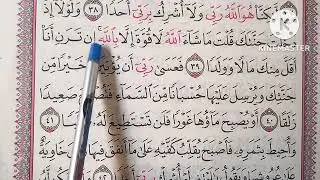 لَّٰكِنَّا۠ هُوَ اللَّهُ رَبِّي وَلَا أُشْرِكُ بِرَبِّي أَحَدًا ٣٨ وَلَوْلَا إِذْ
جَنَّتَكَ قُلْتَ مَا شَاءَ اللَّهُ لَا قُوَّةَ إِلَّا بِاللَّهِ إِن تَرَنِ أَنَا
أَقَلَّ مِنكَ مَالًا وَوَلَدًا ٣٩ فَعَسَىٰ رَبِّي أَن يُؤْتِيَنِ خَيْرًا مِّن
جَنَّتِكَ وَيُرْسِلَ عَلَيْهَا حُسْبَانًا مِّنَ السَّمَاءِ فَتُصْبِحَ صَعِيدًا
زَلَقًا ٤٠ أَوْ يُصْبِحَ مَاؤُهَا غَوْرًا فَلَن تَسْتَطِيعَ لَهُ ٤١
وَأُحِيطَ بِثَمَرِهِ فَأَصْبَحَ يُقَلِّبُ كَفَّيْهِ عَلَىٰ مَا أَنفَقَ فِيهَا خَاوِيَةٌ
KINEMASTER